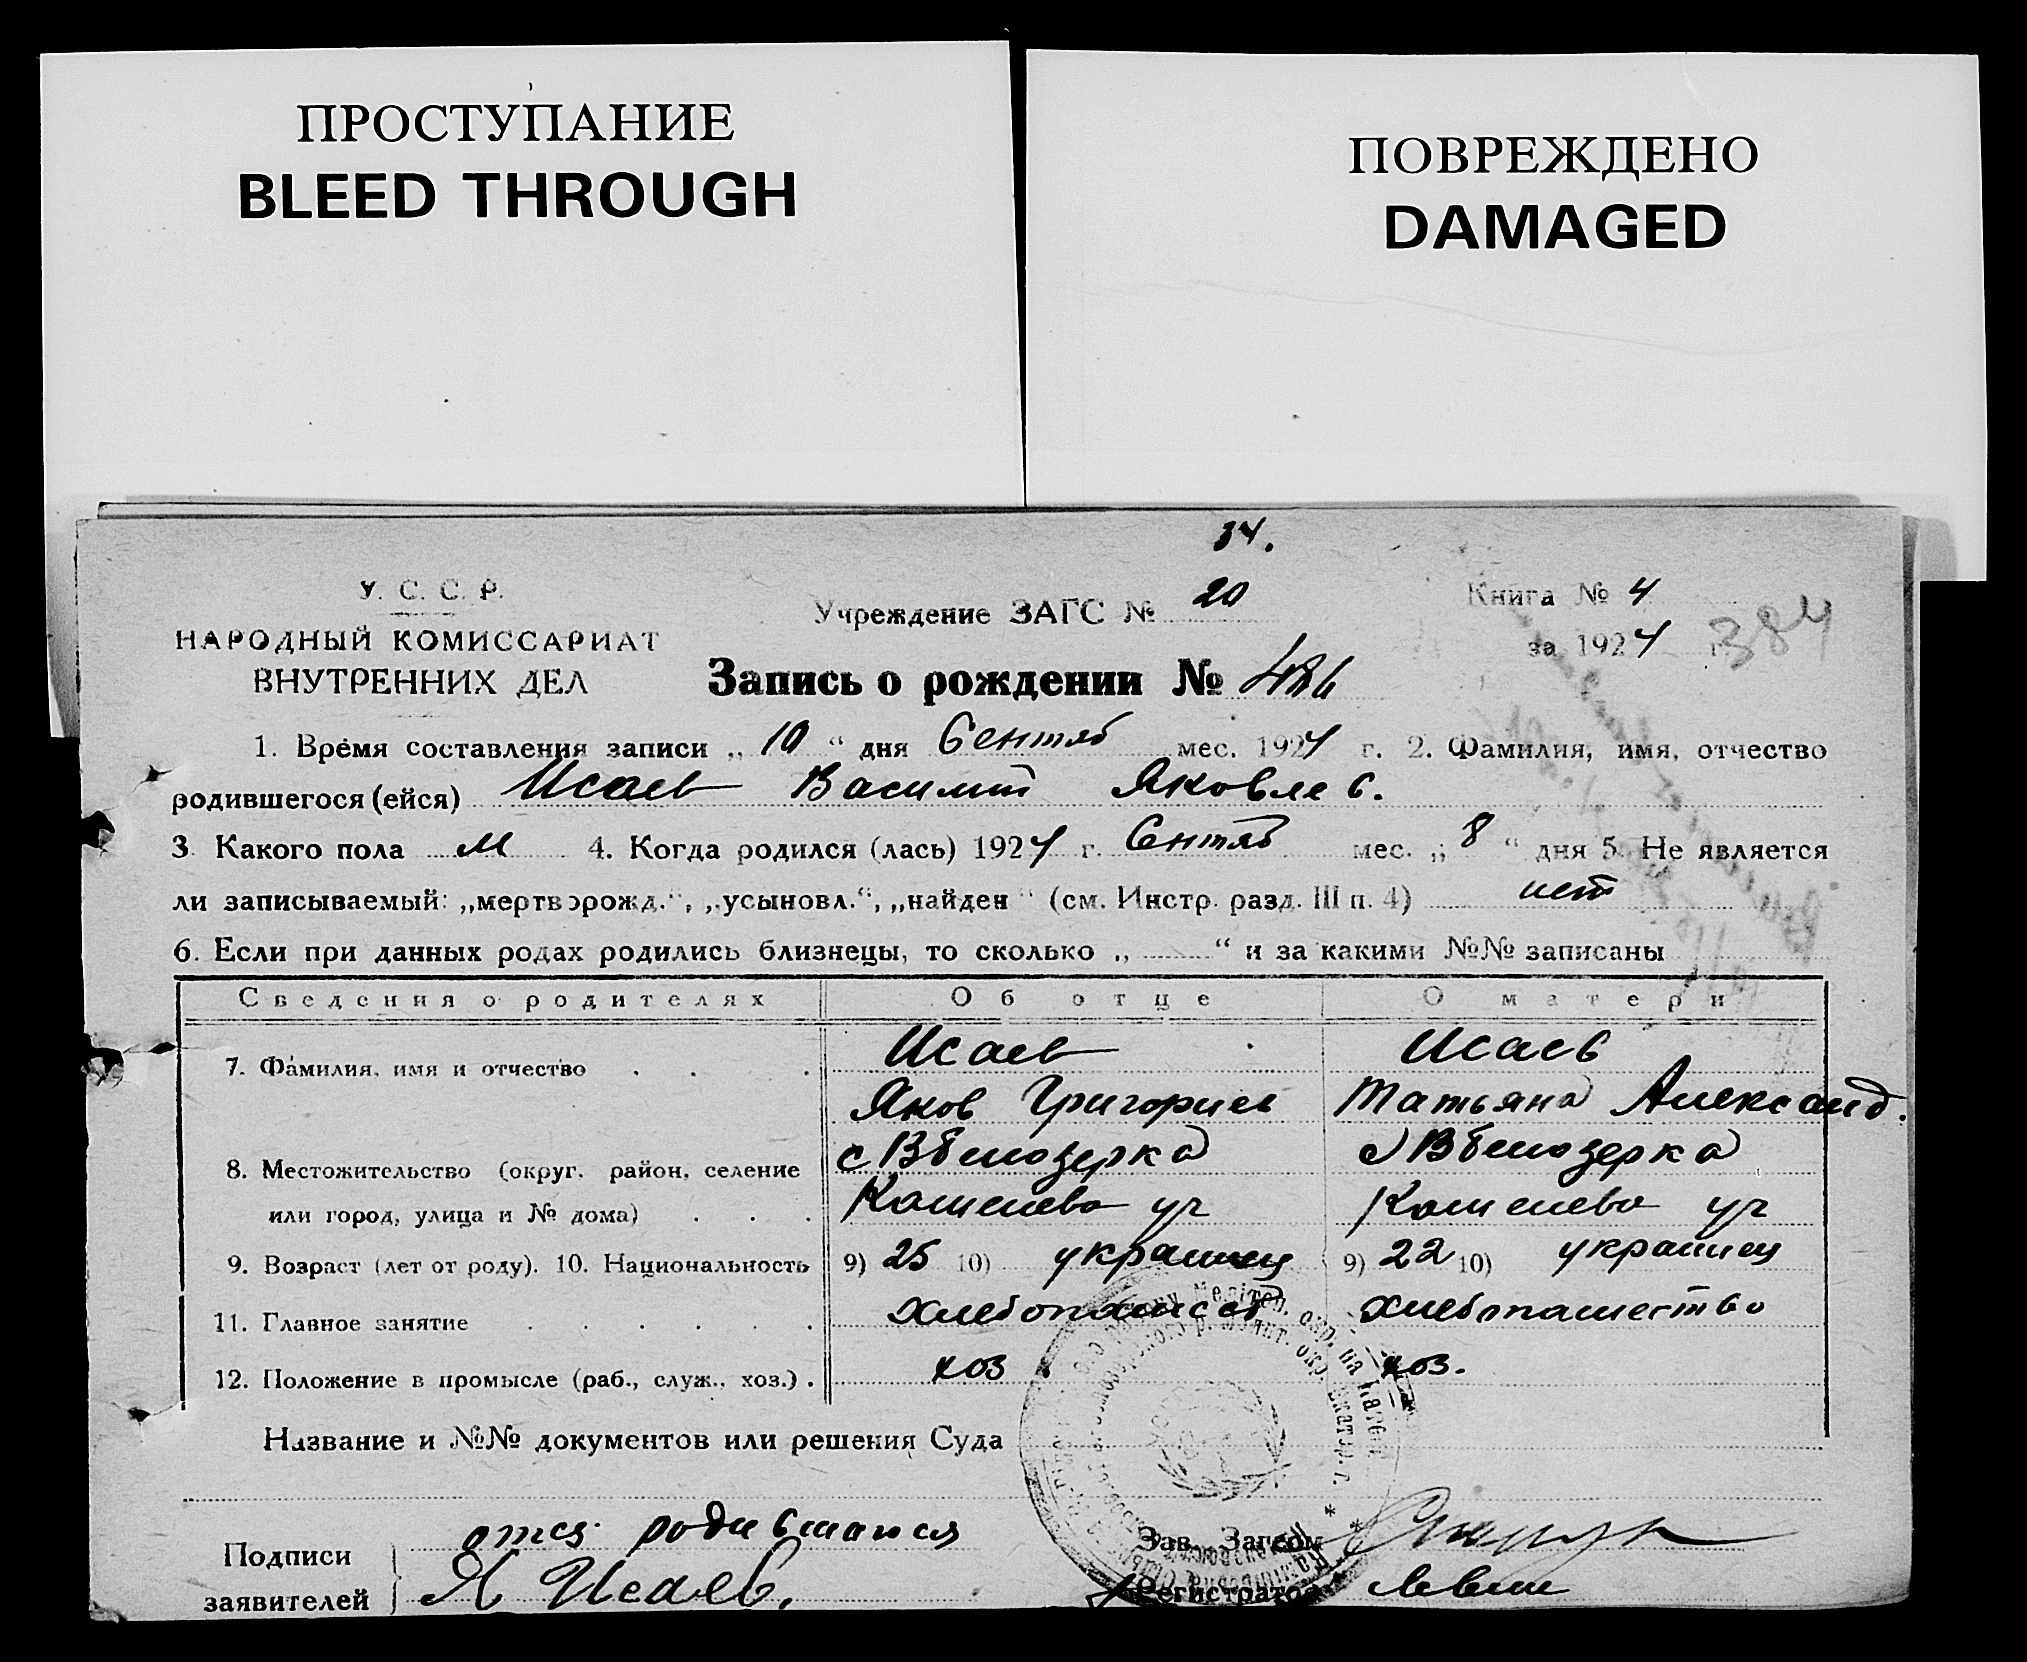 ПРОСТУПАНИЕ
BLEED THROUGH
ПОВРЕЖДЕНО
DAMAGED
34.
У. С. С. Р.
НАРОДНЫЙ КОМИССАРИАТ
ВНУТРЕННИХ ДЕЛ
Учреждение ЗАГС № 20
Книга № 4
за 1924 г.
384
Запись о рождении №
1. Время составления записи „ 10 “ дня Сентяб мес. 1924 г. 2. Фамилия, имя, отчество
родившегося (ейся) Исаев Василий Яковлев.
3. Какого пола м 4. Когда родился (лась) 1924 г. Сентяб мес. „ 8 “ дня 5. Не является
ли записываемый: „мертворожд.“, „усыновл.“, „найден“ (см. Инстр. разд. III п. 4) нет
6. Если при данных родах родились близнецы, то сколько „ “ и за какими №№ записаны
Сведения о родителях Об отце О матери
7. Фамилия, имя и отчество Исаев Исаев
Яков Григориев Татьяна Александ.
8. Местожительство (округ, район, селение с В белозерка с В белозерка
или город, улица и № дома) уч уч
9. Возраст (лет от роду). 10. Национальность 9) 25 10) украинец 9) 22 10) украинец
11. Главное занятие хлебопашест хлебопашество
12. Положение в промысле (раб., служ., хоз.) хоз. хоз.
Название и №№ документов или решения Суда
Подписи
заявителей
отец родившагося
Я Исаев.
Зав. Загсом
Регистратор